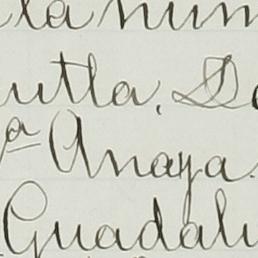 la num
utla. D
ª Anaya.
Guadalu